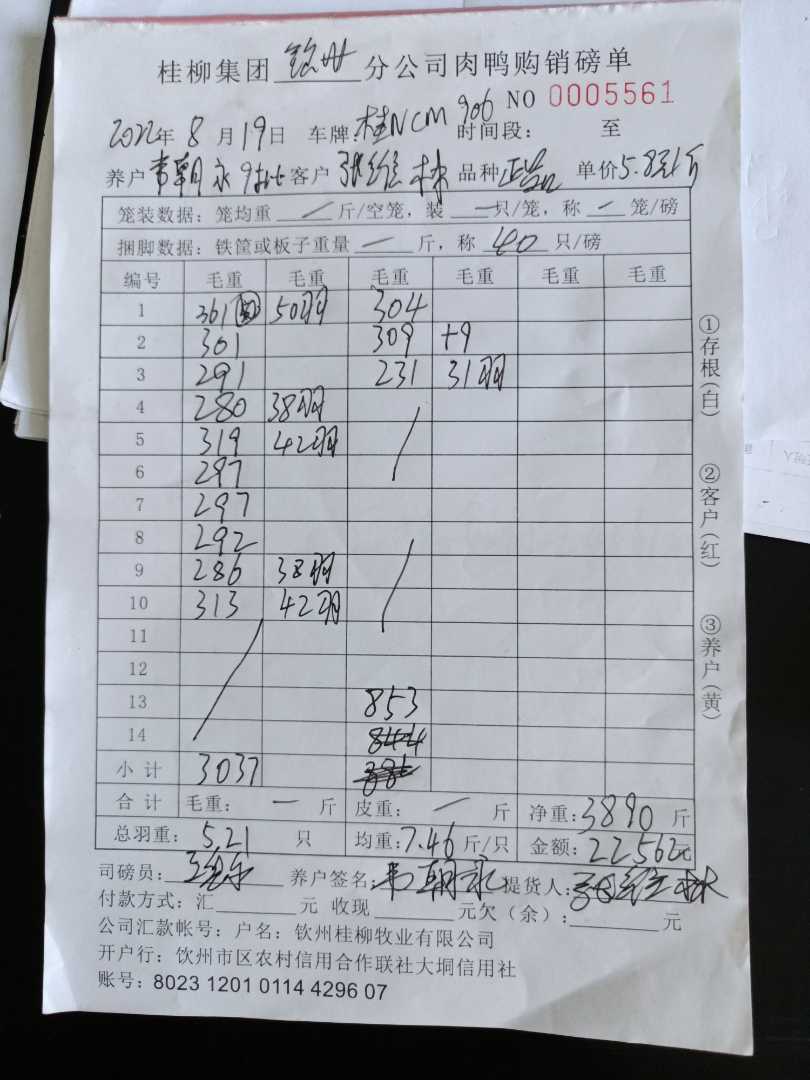 桂柳集团 钦州 分公司肉鸭购销磅单
NO 0005561
2022年 8 月 19 日 车牌:桂NCM 906 时间段: 至
养户 韦朝永 9批 客户 张维林 品种 单价5.8元/斤
笼装数据:笼均重 / 斤/空笼,装 一 只/笼,称 一 笼/磅
捆脚数据:铁筐或板子重量 一 斤,称 40 只/磅
编号 毛重 毛重 毛重 毛重 毛重 毛重
1 361 50羽 304
2 301 309 +9
3 291 231 31羽
4 280 38羽
5 319 42羽
6 297
7 297
8 292
9 286 38羽
10 313 42羽
11
12
13 853
14 844
小计 3037
合计 毛重: 一 斤 皮重: 一 斤 净重:3890 斤
总羽重: 521 只 均重:7.46 斤/只 金额:22562元
司磅员: 养户签名:韦朝永 提货人:张维林
付款方式:汇 元 收现 元欠(余): 元
公司汇款帐号:户名:钦州桂柳牧业有限公司
开户行:钦州市区农村信用合作联社大垌信用社
账号:8023 1201 0114 4296 07
①存根(白)
②客户(红)
③养户(黄)